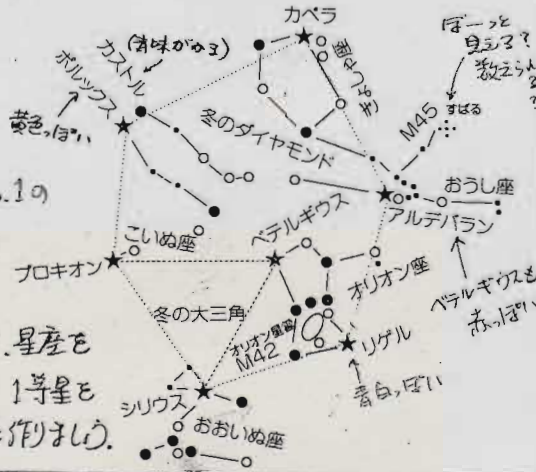 カペラ
(青味がかる)
カストル
ポルックス
黄色っぽい
ぎょしゃ座
ぼーっと
見える?
数えられる
?
M45
すばる
冬のダイヤモンド
おうし座
アルデバラン
こいぬ座
ベテルギウス
プロキオン
オリオン座
ベテルギウスも
赤っぽい
冬の大三角
オリオン星雲
M42
リゲル
青白っぽい
シリウス
おおいぬ座
.1の
星座を
1等星を
作りましょう.